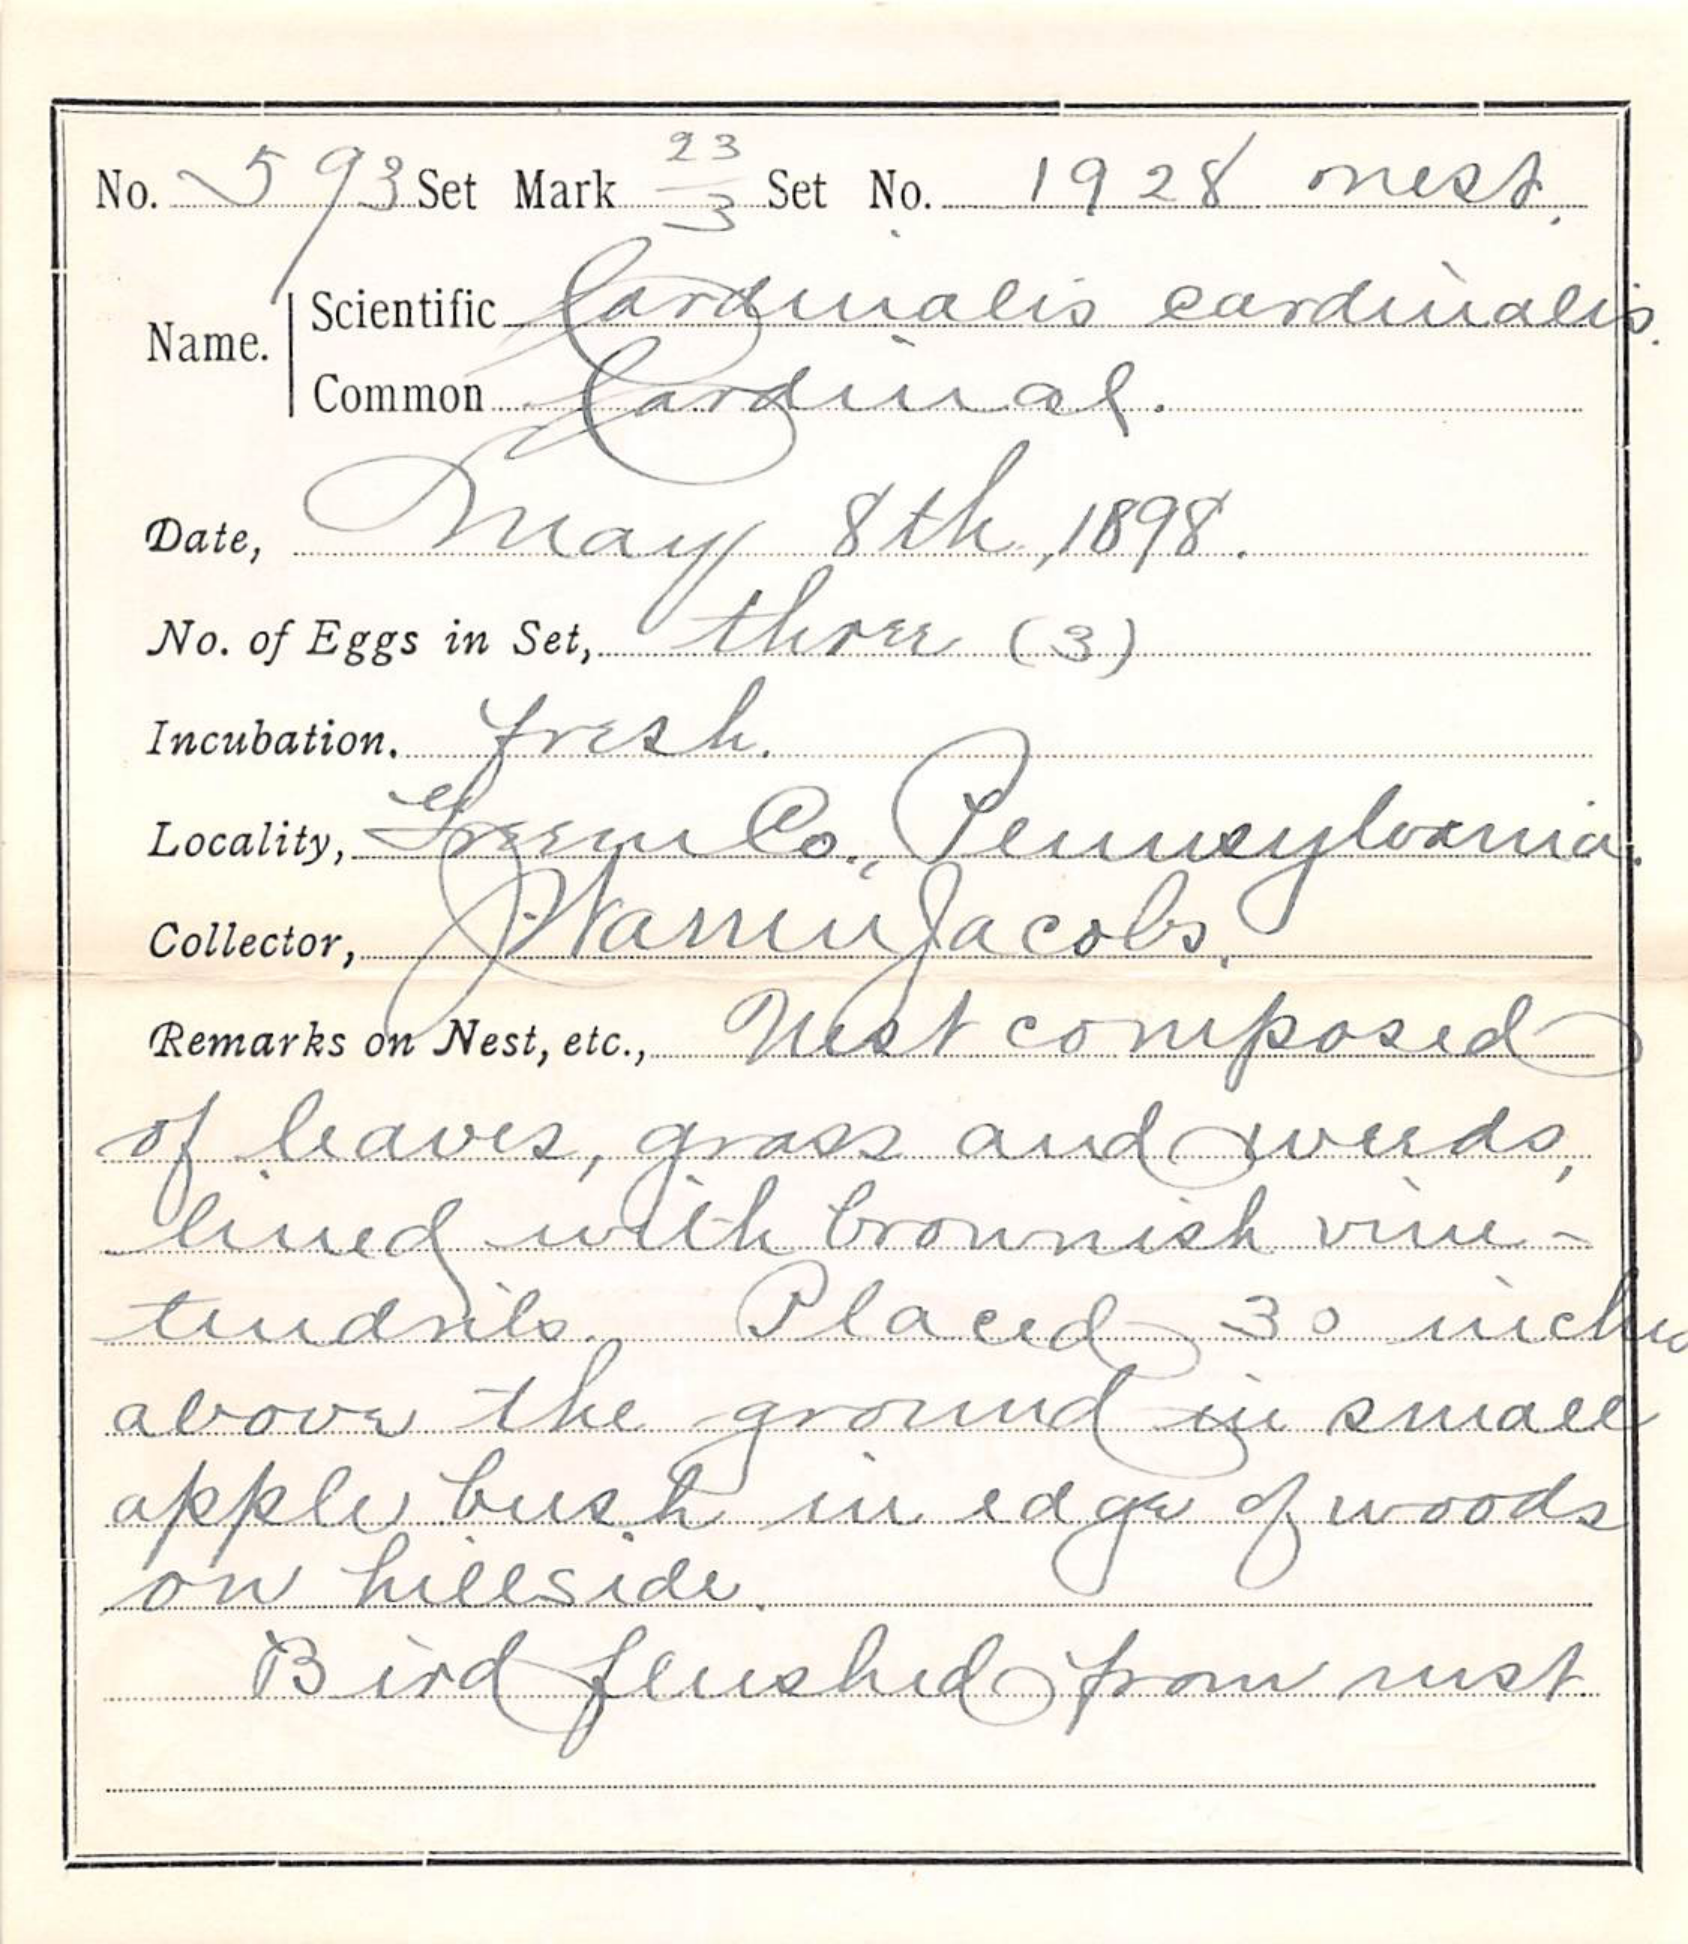 No. 593 Set Mark 23/3 Set No. 1928 nest.
Name. Scientific Cardinalis cardinalis.
Common Cardinal.
Date, May 8th, 1898.
No. of Eggs in Set, three (3)
Incubation. fresh.
Locality, Greene Co., Pennsylvania.
Collector, J. Warren Jacobs.
Remarks on Nest, etc., Nest composed
of leaves, grass and weeds,
lined with brownish vine-
tendrils. Placed 30 inches
above the ground in small
apple bush in edge of woods
on hillside.
Bird flushed from nest.